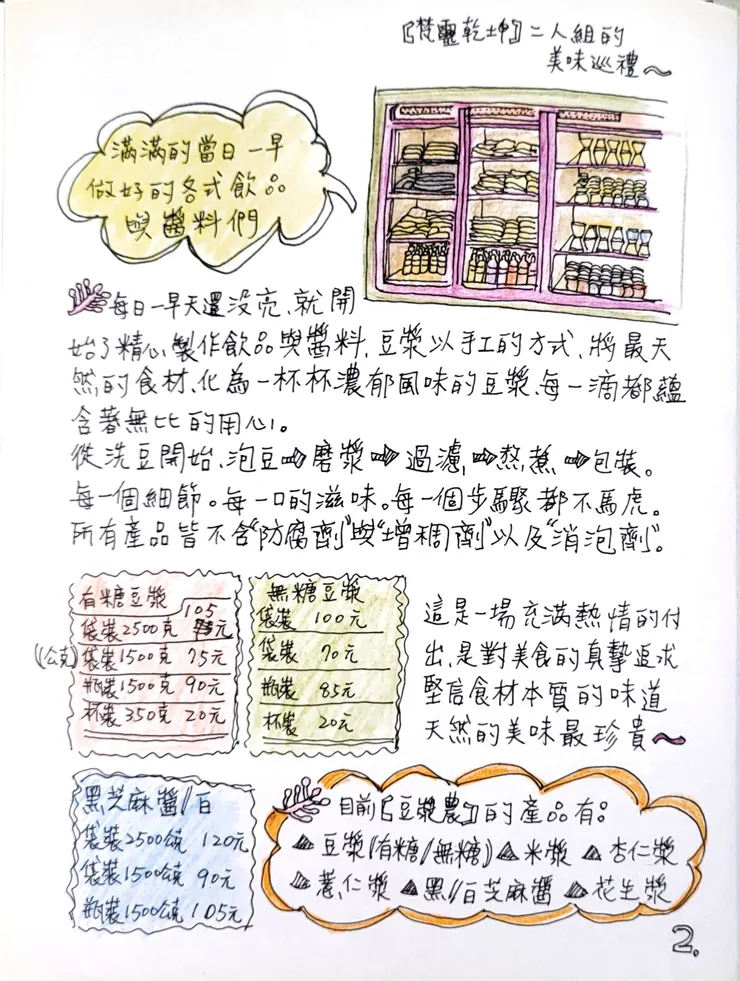 『梵靈乾坤』二人組的
美味巡禮～
滿滿的當日一早
做好的各式飲品
與醬料們
每日一早天還没亮、就開
始了精心製作飲品與醬料,豆漿以手工的方式、將最天
然的食材、化為一杯杯濃郁風味的豆漿、每一滴都蘊
含著無比的用心。
從洗豆開始、泡豆➡磨漿➡過濾➡熬煮➡包裝。
每一個細節。每一口的滋味。每一個步驟都不馬虎。
所有產品皆不含"防腐劑"與"增稠劑"以及"消泡劑"。
有糖豆漿
袋裝2500克 105元
(公克)袋裝1500克 75元
瓶裝1500克 90元
杯裝350克 20元
無糖豆漿
袋裝 100元
袋裝 70元
瓶裝 85元
杯裝 20元
這是一場充滿熱情的付
出、是對美食的真摯追求
堅信食材本質的味道
天然的美味最珍貴～
黑芝麻醬/白
袋裝2500公克 120元
袋裝1500公克 90元
瓶裝1500公克 105元
目前『豆漿農』的產品有:
▲豆漿(有糖/無糖)▲米漿▲杏仁漿
▲薏仁漿▲黑/白芝麻醬▲花生漿
2.